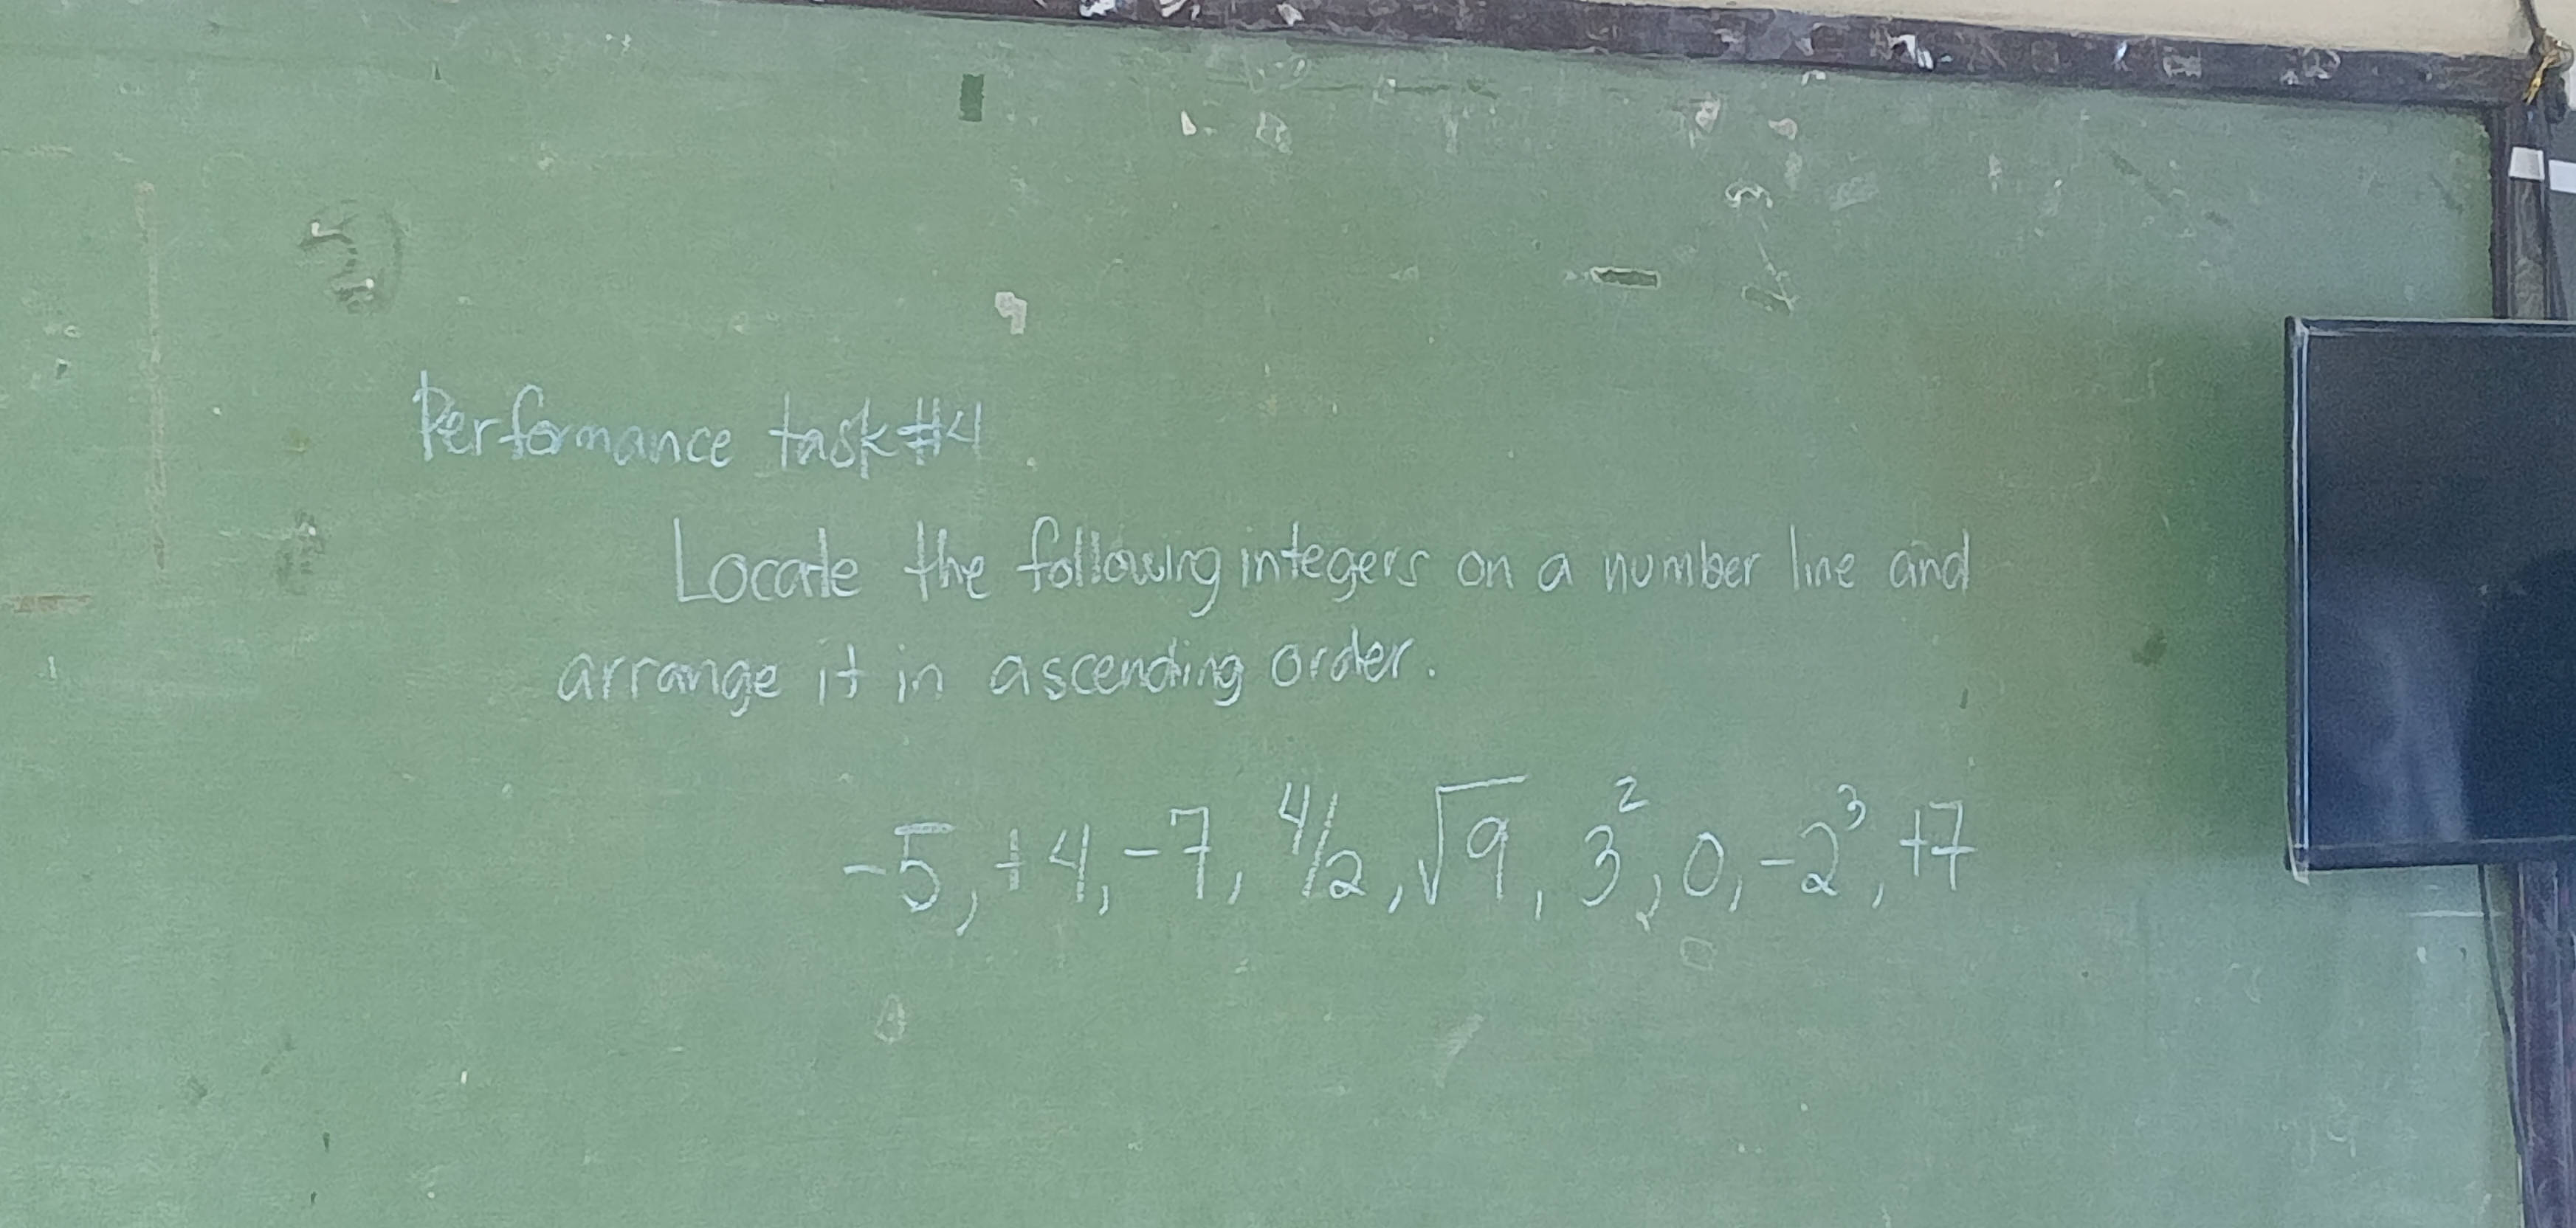 Performance task #4
Locate the following integers on a number line and
arrange it in ascending order.
-5, +4, -7, 4/2, √9, 3², 0, -2³, +7